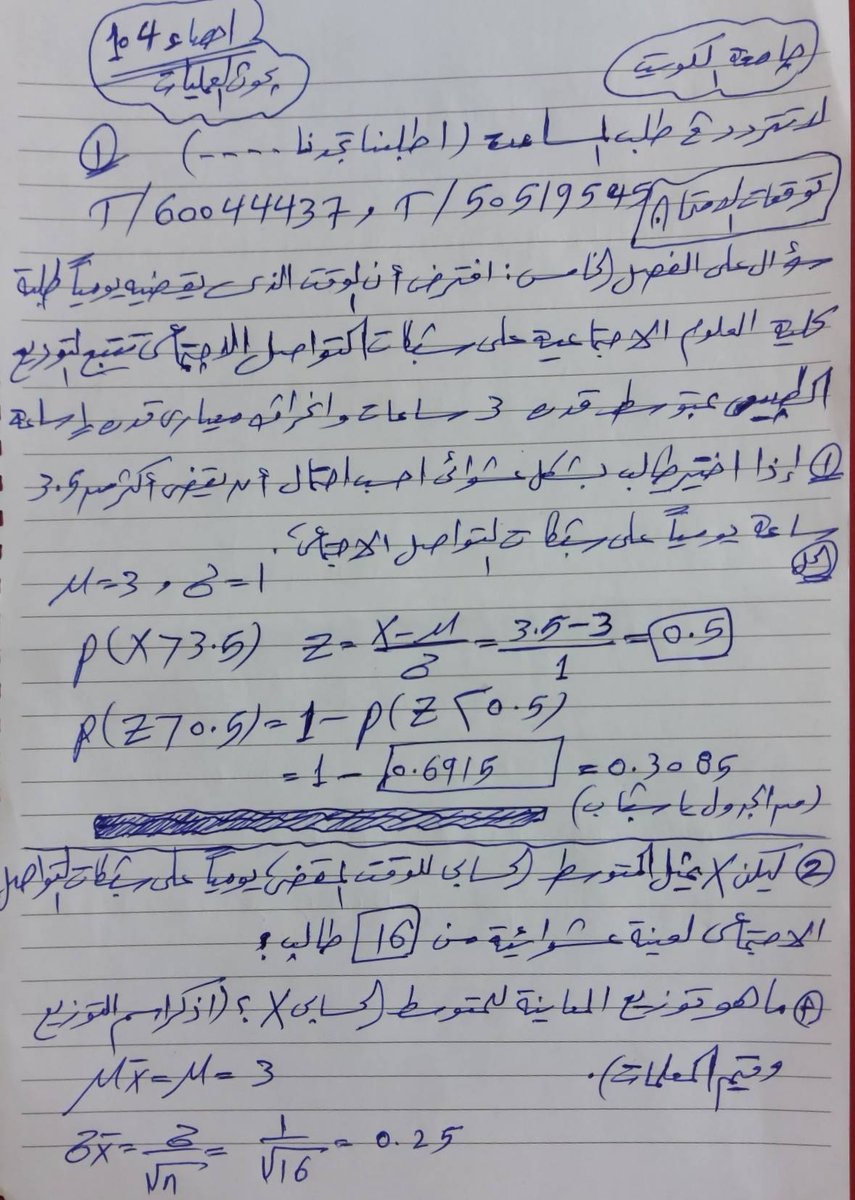 جامعة الكويت
احصاء 104
بحوث العمليات
لا تتردد في طلب المساعدة (اطلبنا تجدنا ....) ①
توقعات الامتحان
T/60044437, T/50519545
سؤال على الفصل الخامس: افترض أن الوقت الذي يقضيه يومياً طلبة
كلية العلوم الاجتماعية على شبكات التواصل الاجتماعي تتبع التوزيع
الطبيعي بمتوسط قدره 3 ساعات وانحراف معياري قدره ساعة
① إذا اختير طالب بشكل عشوائي احسب احتمال أن يقضي أكثر من 3.5
ساعة يومياً على شبكات التواصل الاجتماعي؟
الحل
μ=3, σ=1
P(X>3.5) Z = X-μ/σ = 3.5-3/1 = 0.5
P(Z>0.5) = 1 - P(Z<0.5)
= 1 - 0.6915 = 0.3085
(من الجدول يا شباب)
② ليكن X يمثل المتوسط الحسابي للوقت المقضي يومياً على شبكات التواصل
الاجتماعي لعينة عشوائية من 16 طالب؟
Ⓐ ما هو توزيع المعاينة للمتوسط الحسابي X؟ (اذكر اسم التوزيع
وقيم المعلمات).
μx̄ = μ = 3
σx̄ = σ/√n = 1/√16 = 0.25